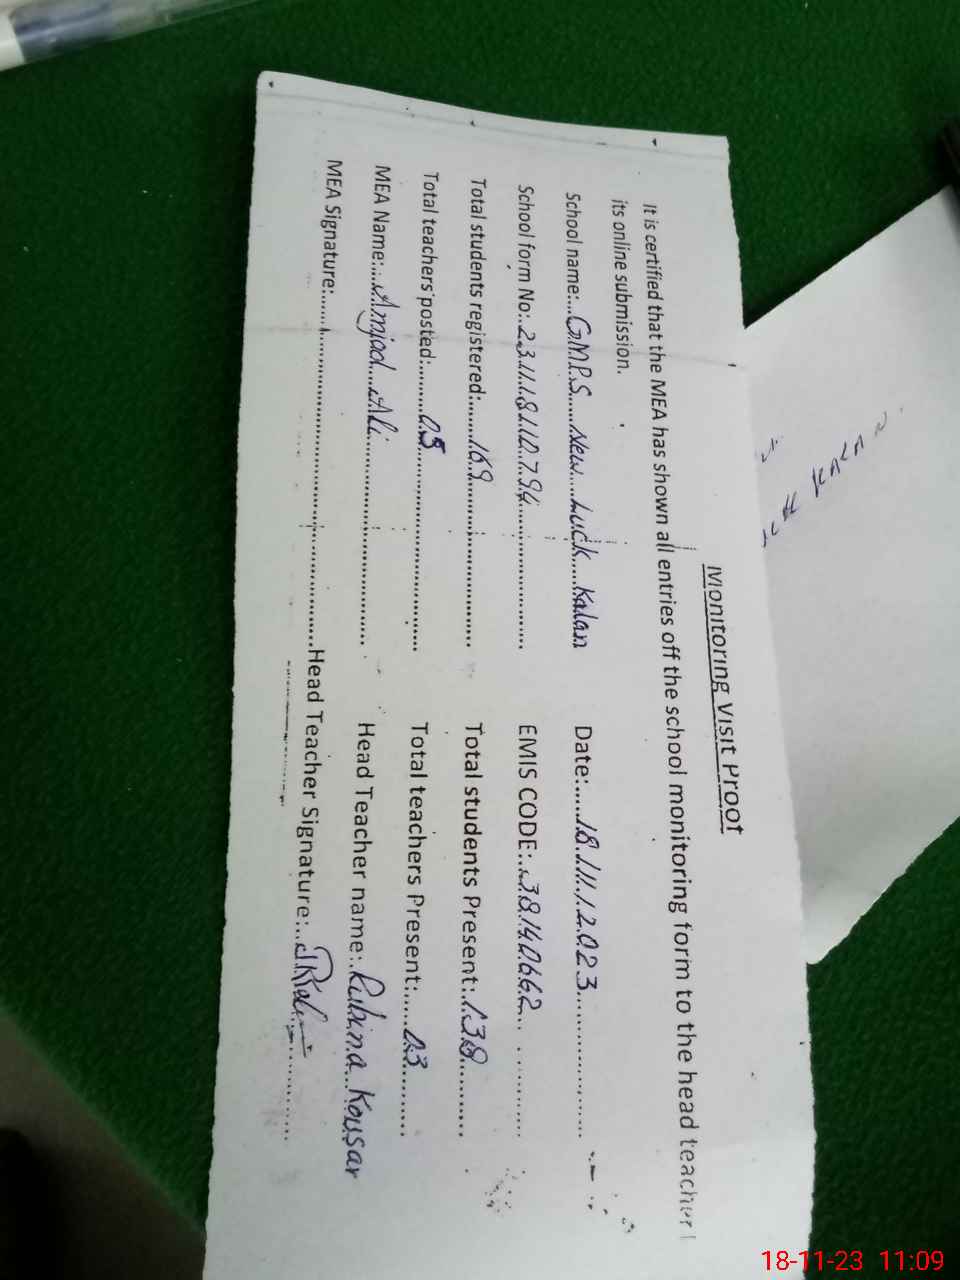 Monitoring Visit Proof
It is certified that the MEA has shown all entries off the school monitoring form to the head teacher
its online submission.
School name:....G.M.P.S.....New....Luck....Kalan Date:......18.11.2023...................
School form No:..23111811079.................... EMIS CODE:..38140662.................
Total students registered:.......169...................... Total students Present:..138..........
Total teachers posted:.........05......................... Total teachers Present:......03..........
MEA Name:....Amjad....Ali............................ Head Teacher name:..Rubina..Kousar
MEA Signature:.................................................Head Teacher Signature:..................
KALAN
18-11-23 11:09